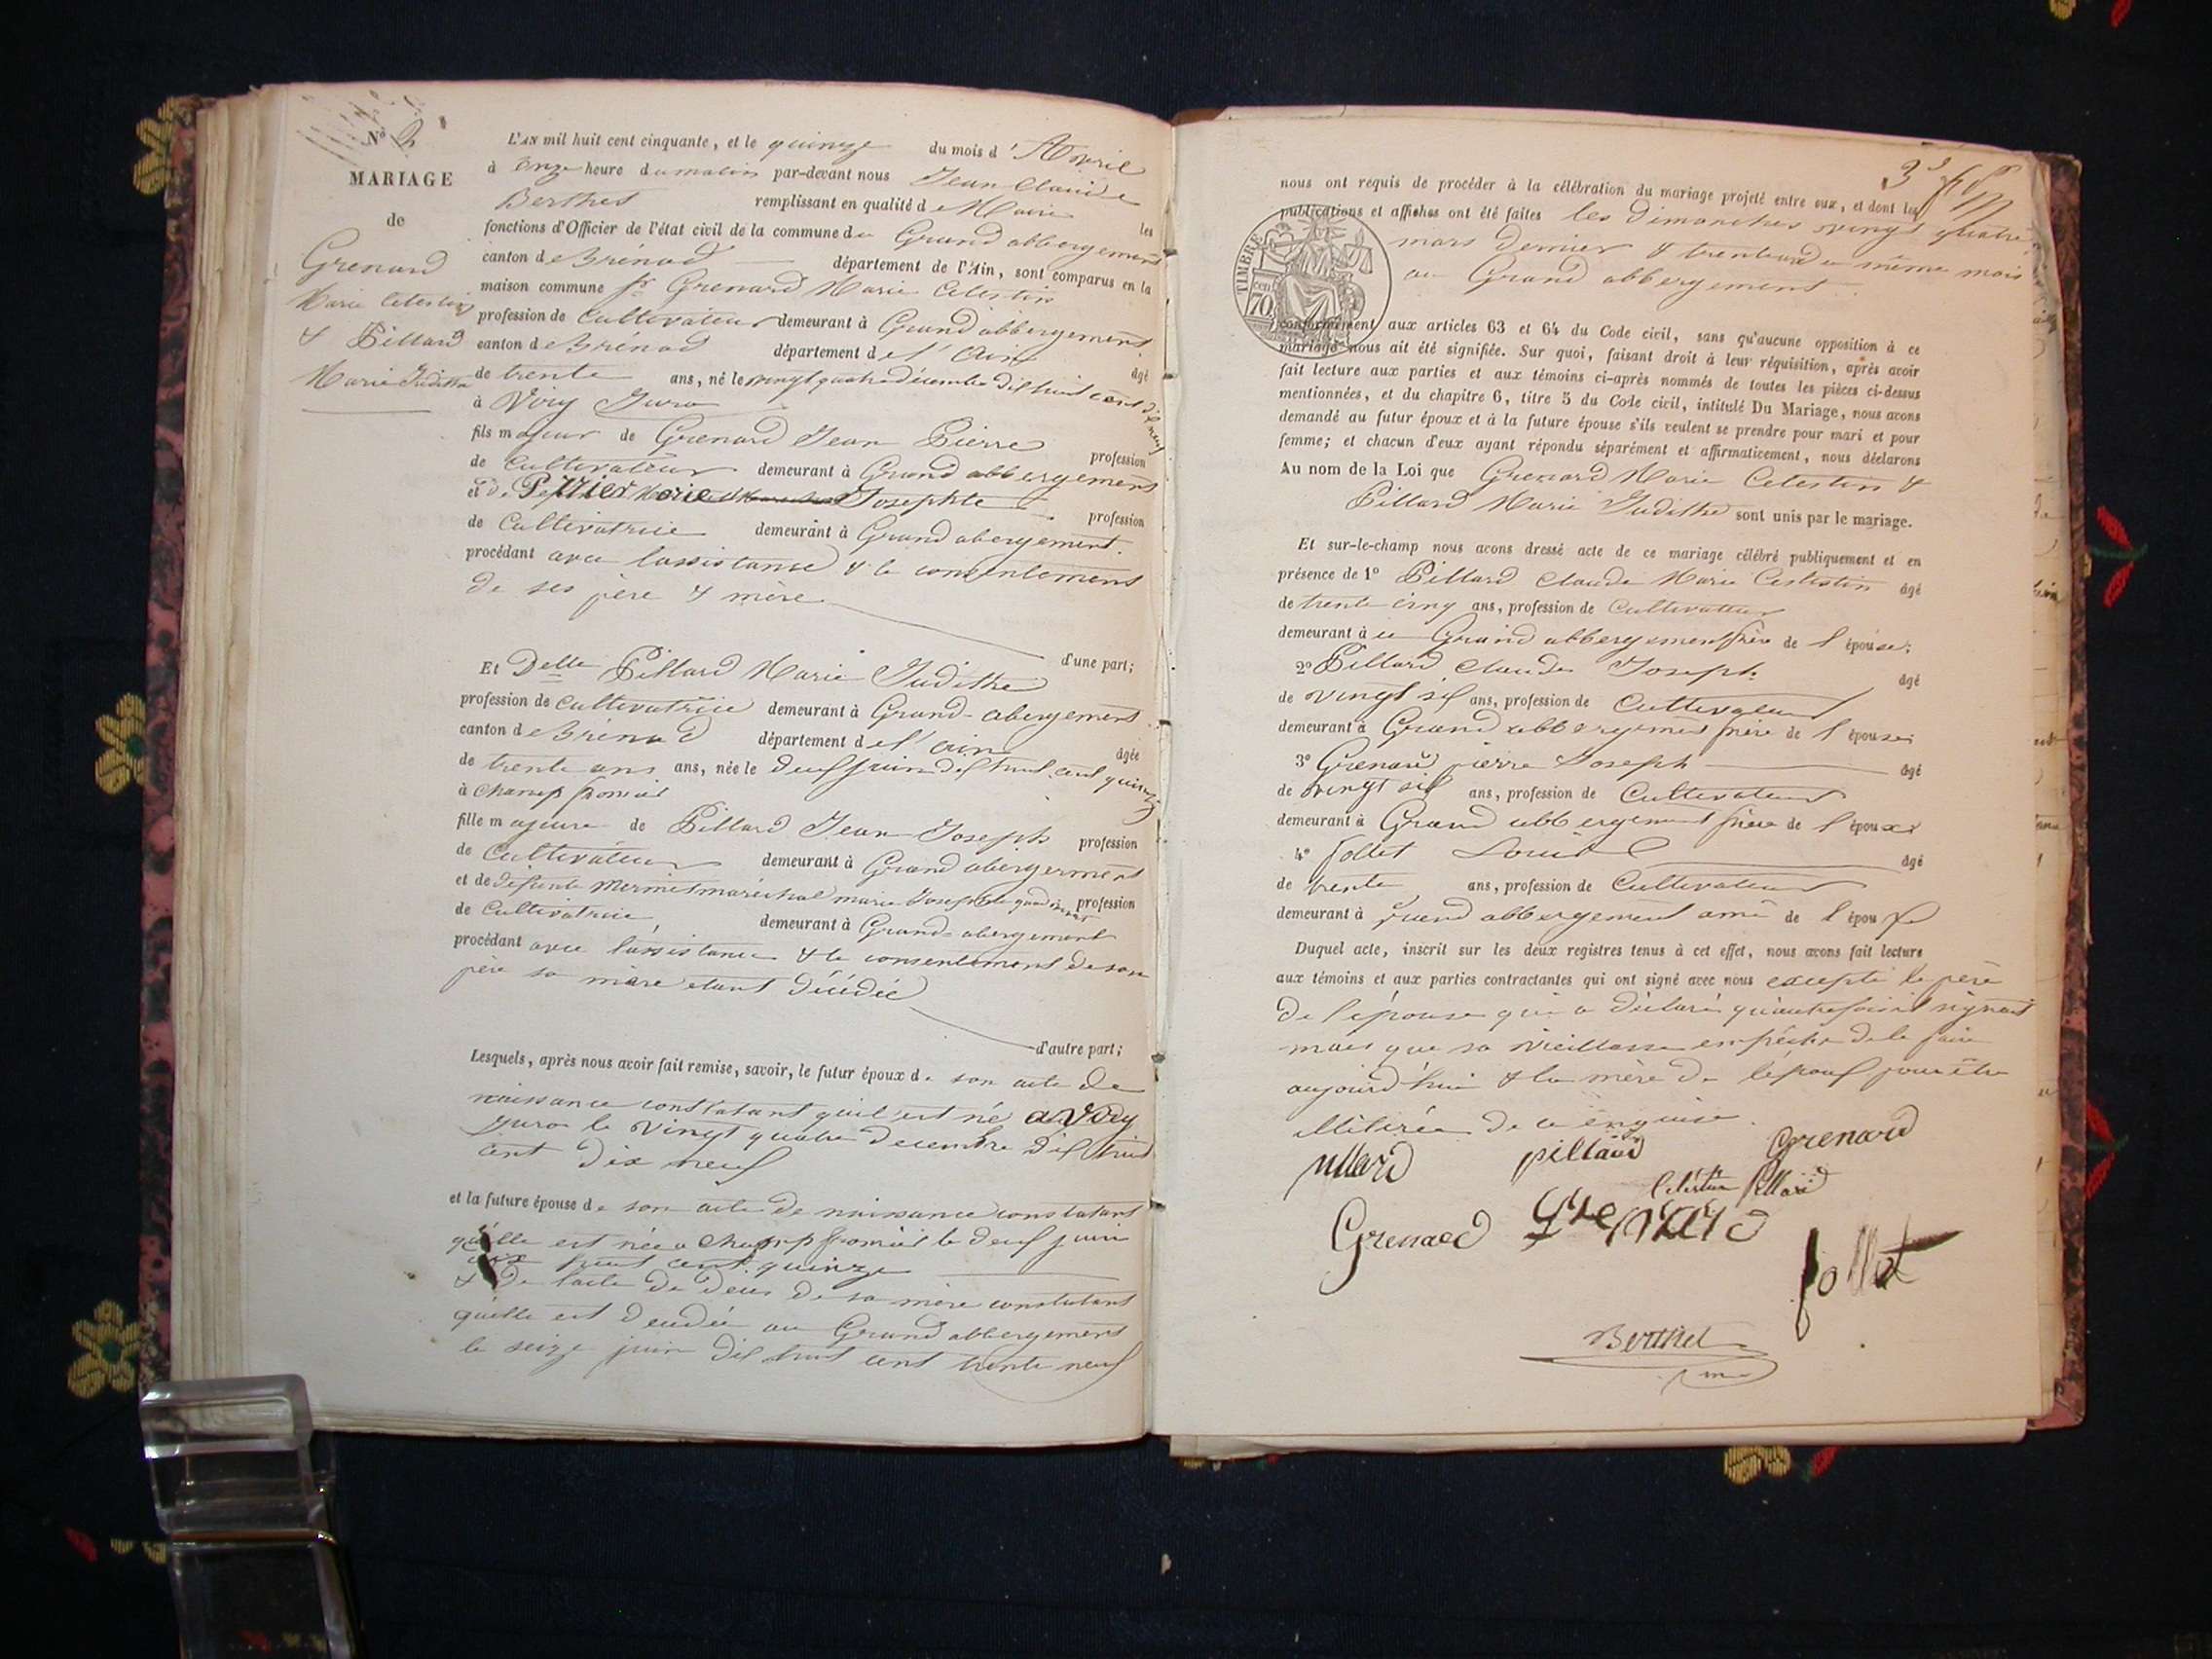 Nº 2
MARIAGE
de
Grenard
Marie Celestin
& Pillard
Marie Judithe
L'AN mil huit cent cinquante, et le quinze du mois d'Avril
à onze heure du matin par-devant nous Jean Claude
Berthet remplissant en qualité de Maire les
fonctions d'Officier de l'état civil de la commune du Grand abbergement
canton de Brénod département de l'Ain, sont comparus en la
maison commune sr Grenard Marie Celestin
profession de Cultivateur demeurant à Grand abbergement
canton de Brénod département de l'Ain âgé
de trente ans, né le vingt quatre décembre dix huit cent dix neuf
à Viry Jura
fils majeur de Grenard Jean Pierre profession
de Cultivateur demeurant à Grand abbergement
et de Perrier Marie Josephte profession
de Cultivatrice demeurant à Grand abergement.
procédant avec l'assistance & le consentement
de ses père & mère
d'une part;
Et Delle Pillard Marie Judithe
profession de cultivatrice demeurant à Grand-abergement
canton de Brénod département de l'ain âgée
de trente ans ans, née le deux juin dix huit cent quinze
à Champfromier
fille majeure de Pillard Jean Joseph profession
de Cultivateur demeurant à Grand abergement
et de défunte Mermet maréchal marie Josephte profession
de Cultivatrice demeurant à Grand-abergement
procédant avec l'assistance & le consentement de son
père sa mère étant décédée
d'autre part;
Lesquels, après nous avoir fait remise, savoir, le futur époux de son acte de
naissance constatant qu'il est né a Viry
Jura le vingt quatre decembre dix huit
cent dix neuf
et la future épouse de son acte de naissance constatant
qu'elle est née a Champfromier le deux juin
dix huit cent quinze
& de l'acte de décès de sa mère constatant
qu'elle est decedée au Grand abbergement
le seize juin dix huit cent trente neuf
3e
nous ont requis de procéder à la célébration du mariage projeté entre eux, et dont les
publications et affiches ont été faites les dimanches vingt quatre
mars dernier & trente un du même mois
au Grand abbergement.
TIMBRE
70 cen
conformément aux articles 63 et 64 du Code civil, sans qu'aucune opposition à ce
mariage nous ait été signifiée. Sur quoi, faisant droit à leur réquisition, après avoir
fait lecture aux parties et aux témoins ci-après nommés de toutes les pièces ci-dessus
mentionnées, et du chapitre 6, titre 5 du Code civil, intitulé Du Mariage, nous avons
demandé au futur époux et à la future épouse s'ils veulent se prendre pour mari et pour
femme; et chacun d'eux ayant répondu séparément et affirmativement, nous déclarons
Au nom de la Loi que Grenard Marie Celestin &
Pillard Marie Judithe sont unis par le mariage.
Et sur-le-champ nous avons dressé acte de ce mariage célébré publiquement et en
présence de 1º Pillard Claude Marie Celestin âgé
de trente cinq ans, profession de Cultivateur
demeurant à ce Grand abbergement frère de l'épouse;
2º Pillard Claude Joseph âgé
de vingt six ans, profession de Cultivateur
demeurant à Grand abbergement frère de l'épouse;
3º Grenard pierre Joseph âgé
de vingt six ans, profession de Cultivateur
demeurant à Grand abbergement frère de l'époux
4º Jollet Louis âgé
de trente ans, profession de Cultivateur
demeurant à Grand abbergement ami de l'époux
Duquel acte, inscrit sur les deux registres tenus à cet effet, nous avons fait lecture
aux témoins et aux parties contractantes qui ont signé avec nous excepté le père
de l'épouse qui a déclaré qu'autrefois il signait
mais que sa vieillesse empêche de le faire
aujourd'hui & la mère de l'époux pour être
illitirée de ce enquise.
pillard pillard Grenard
Celestin Pillard
Grenard Grenard
Jollet
Berthet